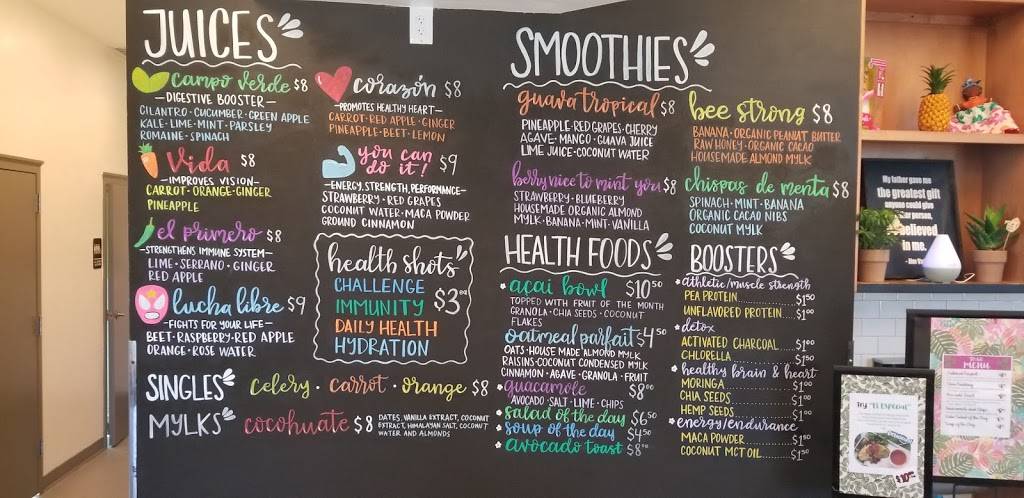 JUICES
campo verde $8
-DIGESTIVE BOOSTER-
CILANTRO·CUCUMBER·GREEN APPLE
KALE·LIME·MINT·PARSLEY
ROMAINE·SPINACH
vida $8
-IMPROVES VISION-
CARROT·ORANGE·GINGER
PINEAPPLE
el primero $8
-STRENGTHENS IMMUNE SYSTEM-
LIME·SERRANO·GINGER
RED APPLE
lucha libre $9
-FIGHTS FOR YOUR LIFE-
BEET·RASPBERRY·RED APPLE
ORANGE·ROSE WATER
corazón $8
-PROMOTES HEALTHY HEART-
CARROT·RED APPLE·GINGER
PINEAPPLE·BEET·LEMON
you can do it! $9
-ENERGY, STRENGTH, PERFORMANCE-
STRAWBERRY·RED GRAPES
COCONUT WATER·MACA POWDER
GROUND CINNAMON
health shots
CHALLENGE
IMMUNITY $3.00
DAILY HEALTH
HYDRATION
SINGLES celery·carrot·orange $8
MYLKS cocohuate $8 DATES, VANILLA EXTRACT, COCONUT
EXTRACT, HIMALAYAN SALT, COCONUT
WATER AND ALMONDS
SMOOTHIES
guava tropical $8
PINEAPPLE·RED GRAPES·CHERRY
AGAVE·MANGO·GUAVA JUICE
LIME JUICE·COCONUT WATER
berry nice to mint you $8
STRAWBERRY·BLUEBERRY
HOUSEMADE ORGANIC ALMOND
MYLK·BANANA·MINT·VANILLA
bee strong $8
BANANA·ORGANIC PEANUT BUTTER
RAW HONEY·ORGANIC CACAO
HOUSEMADE ALMOND MYLK
chispas de menta $8
SPINACH·MINT·BANANA
ORGANIC CACAO NIBS
COCONUT MYLK
HEALTH FOODS
acai bowl $10.50
TOPPED WITH FRUIT OF THE MONTH
GRANOLA·CHIA SEEDS·COCONUT
FLAKES
oatmeal parfait $4.50
OATS·HOUSE MADE ALMOND MYLK
RAISINS·COCONUT CONDENSED MYLK
CINNAMON·AGAVE·GRANOLA·FRUIT
guacamole $8.00
AVOCADO·SALT·LIME·CHIPS
salad of the day $6.50
soup of the day $4.50
avocado toast
BOOSTERS
athletic/muscle strength
PEA PROTEIN......$1.50
UNFLAVORED PROTEIN.....$1.00
detox
ACTIVATED CHARCOAL......$1.00
CHLORELLA......$1.50
healthy brain & heart
MORINGA......$1.00
CHIA SEEDS......$1.00
HEMP SEEDS......$1.00
energy/endurance
MACA POWDER......
COCONUT MCT OIL......$1.50
My father gave me
the greatest gift
anyone could give
person,
believed
in me.
MENU
Try "El Especial"